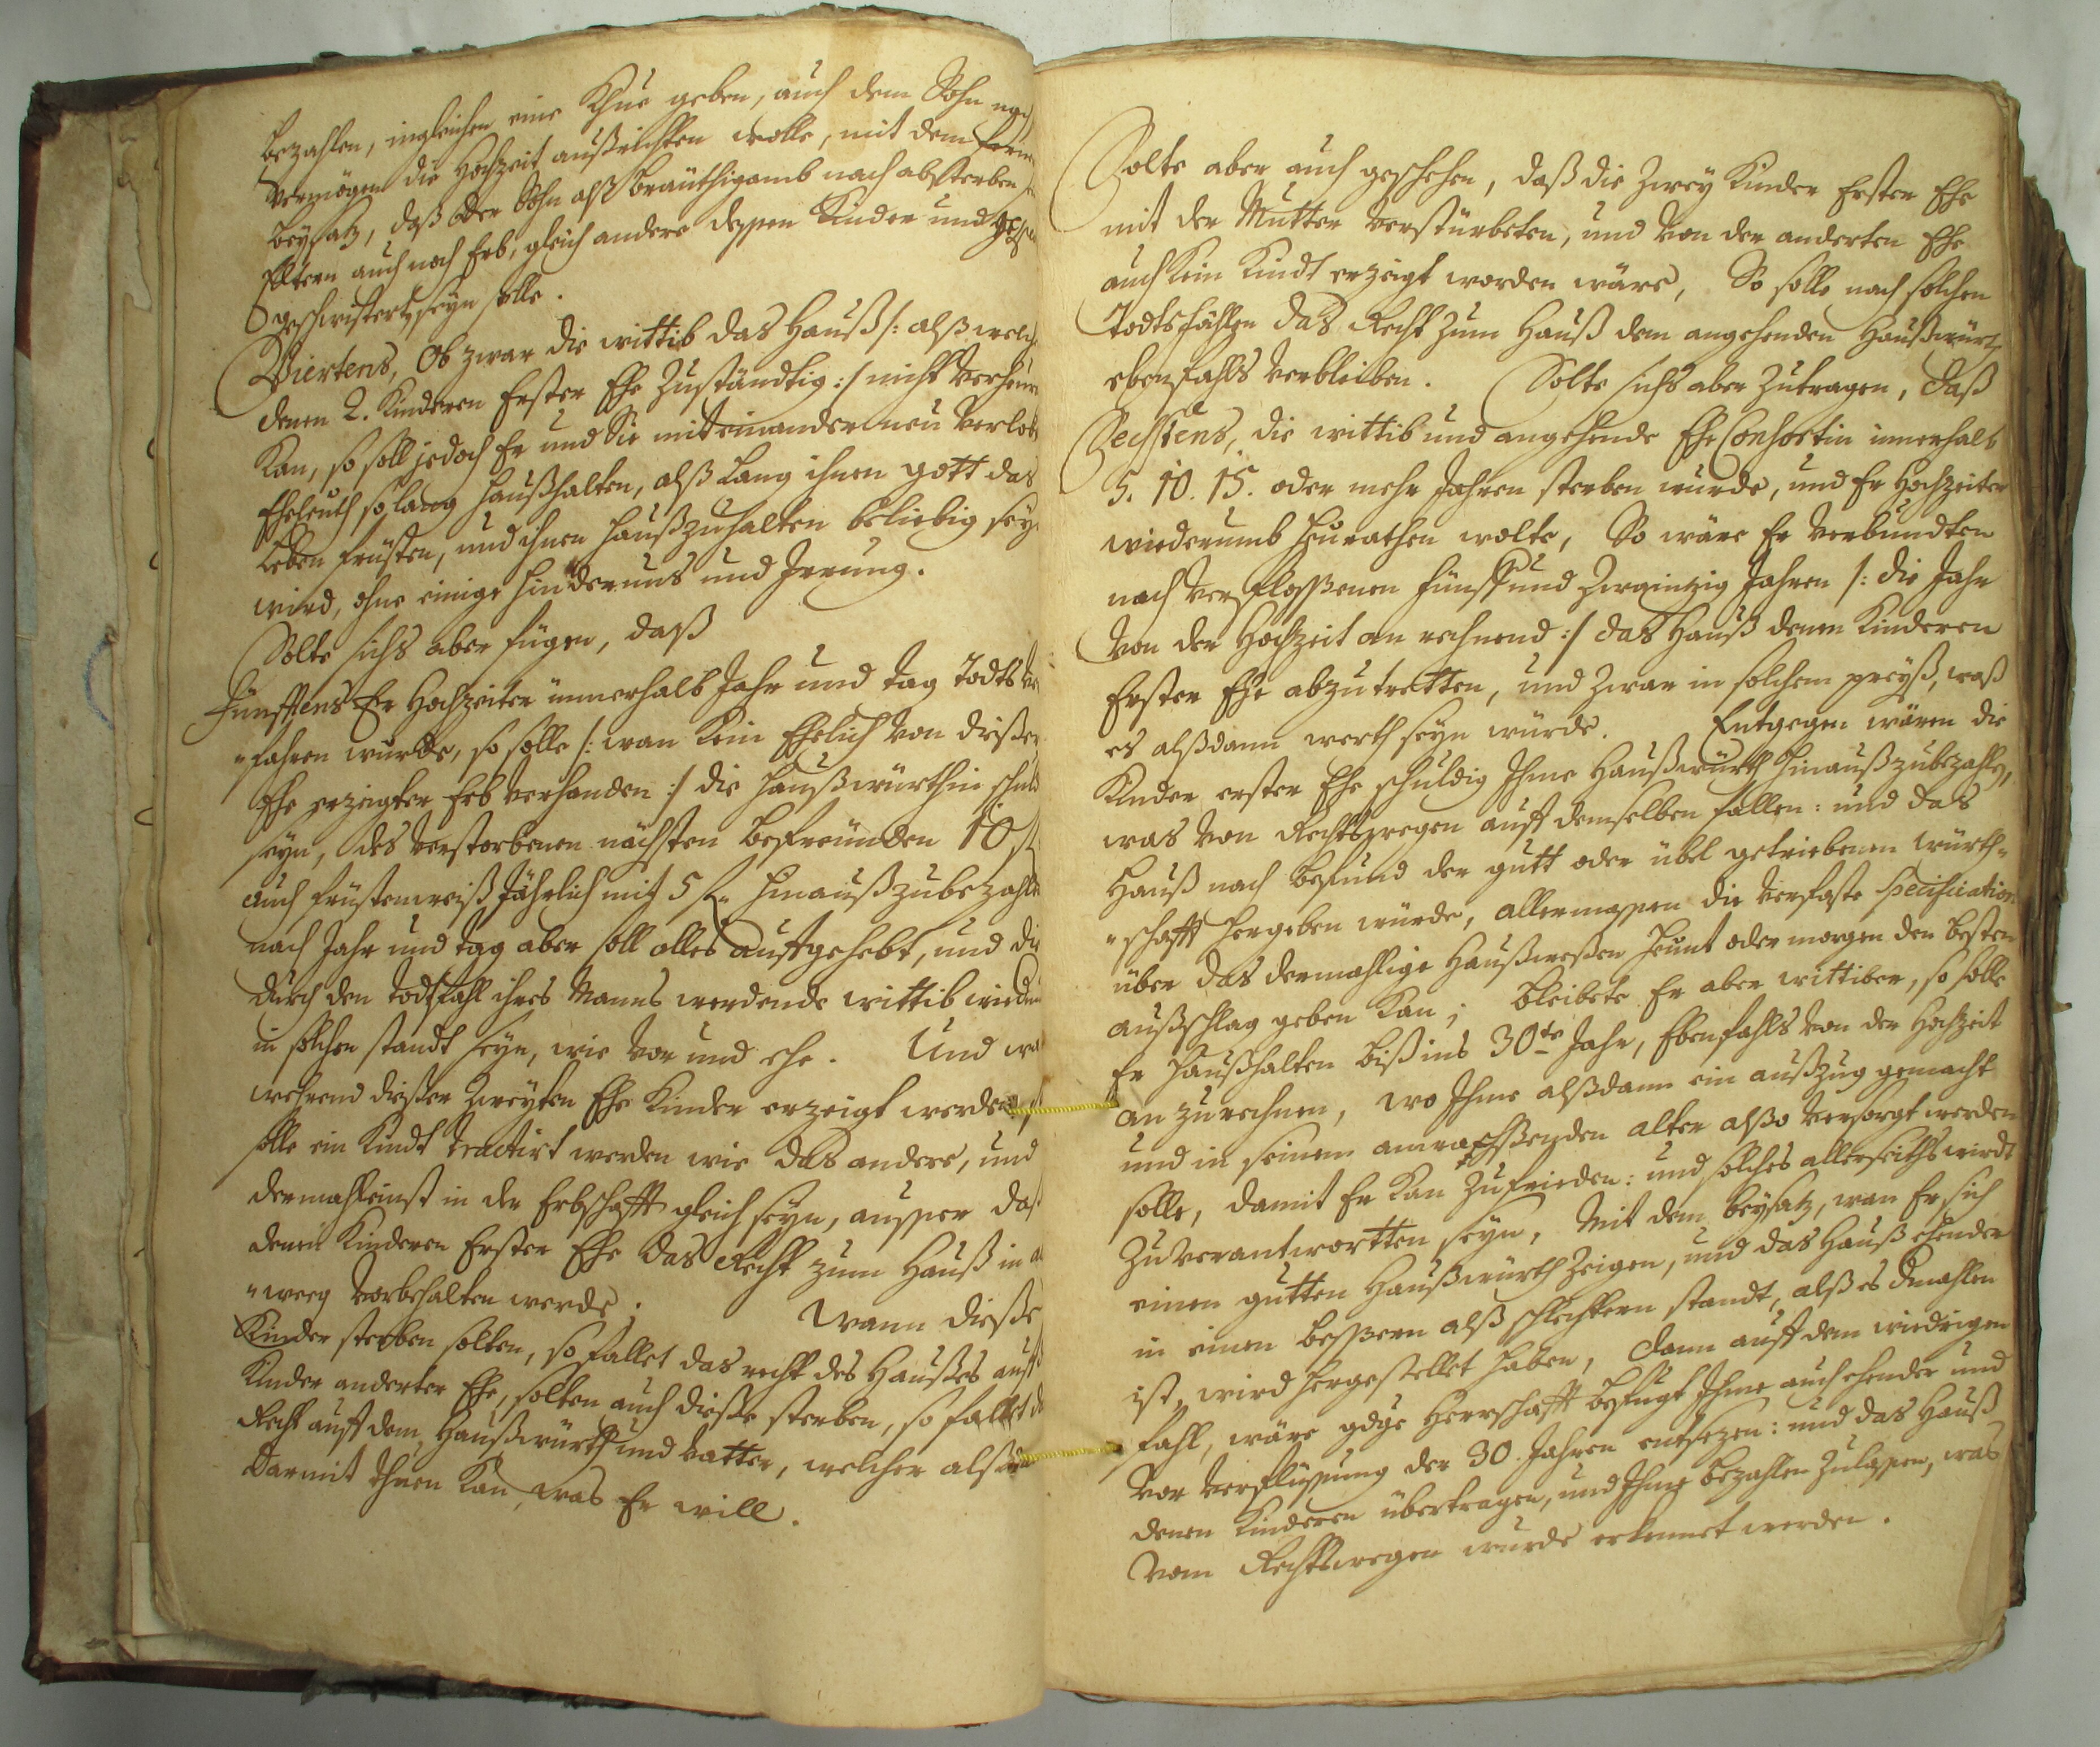 bezahlen, ingleichen eine Khue geben, auch dem Sohn nach
Vermögen die Hochzeit außrichten wolle, mit dem fernern
beysatz, daß der Sohn alß bräuthigamb nach absterben
Eltern auch noch Erb, gleich andere dessen Kinder und
geschwistert seyn solle.
Viertens, Ob zwar die wittib das Hauß /: alß welch
denen 2. Kinderen Erster Ehe zuständtig :/ nicht verheur
kan, so soll jedoch Er und Sie miteinander neu Verlobt
Eheleuth so lang haußhalten, alß lang ihnen gott das
Leben fristen, und ihnen haußzuhalten beliebig seyn
wird, ohne einige hindernus und Irrung.
Solte sichs aber fügen, daß
Fünfftens Er Hochzeiter innerhalb Jahr und tag Todts ver
"fahren wurde, so solle /: wan kein Ehelich von dißer
Ehe erzeigter Erb verhanden :/ die haußwürthin schuldig
seyn, des verstorbenen nächsten befreünden 10 fl
auch fristenweiß Jährlich mit 5 fl. hinauß zubezahlen
nach Jahr und tag aber soll alles auffgehebt, und die
durch den todtfahl ihres Manns werdende wittib wiederumb
in solchen standt seyn, wie vor und ehe. Und wan
wehrend dißer zweyten Ehe Kinder erzeigt werden,
solle ein Kindt tractirt werden wie das andere, und
dermahleinst in der Erbschafft gleich seyn, ausser das
denen Kinderen Erster Ehe das Recht zum Hauß in al
"weeg vorbehalten werde. Wann dieße
Kinder sterben solten, so fallet das recht des Haußes auff
Kinder anderter Ehe, solten auch dieße sterben, so fallet das
Recht auff dem Haußwürth und vatter, welcher alßdan
darmit thuen kan, was Er will.
Solte aber auch geschehen, daß die zwey Kinder Erster Ehe
mit der Mutter verstürbeten, und von der anderten Ehe
auch kein Kindt erzeigt worden wäre, So solle nach solchen
Todtsfählen das Recht zum Hauß dem angehenden Haußwürth
ebenfahls verbleiben. Solte sichs aber zutragen, daß
Sechstens, die wittib und angehende Ehe Consortin innerhalb
5. 10. 15. oder mehr Jahren sterben wurde, und Er Hochzeiter
wiederumb heurathen wolte, So wäre Er verbundten
nach verflossenen fünff und zwaintzig Jahren /: die Jahr
von der Hochzeit an rechnend :/ das Hauß denen Kinderen
Erster Ehe abzutretten, und zwar in solchem preyß, waß
es alßdann werth seyn würde. Entgegen wären die
Kinder erster Ehe schuldig Ihme Haußwürth hinauß zubezahlen,
was von Rechtswegen auff demselben fallen: und das
Hauß nach befund der gutt oder übel getriebenen würth-
"schafft hergeben würde, allermassen die verfaste Specification
über das dermahlige Haußweßen heunt oder morgen den besten
außschlag geben kan; bleibete Er aber wittiber, so solle
Er haußhalten biß ins 30te Jahr, Ebenfahls von der Hochzeit
an zurechnen, wo Ihme alßdann ein außzug gemacht
und in seinem anwachßenden alter alßo versorgt werden
solle, damit Er kan zufrieden: und solches allerseiths wirdt
zu verantwortten seyn, Mit dem beysatz, wan Er sich
einen gutten Haußwürth zeigen, und das Hauß ehender
in einen beßeren alß schlechtern standt, alß es dmahlen
ist, wird hergestellet haben, dann auff dem wiedrigen
fahl, wäre gdge Herrschafft befugt Ihme auch ehender und
vor verfliessung der 30. Jahren entsezen: und das Hauß
denen Kinderen übertragen, und Ihme bezahlen zulassen, was
vom Rechtswegen wurde erkennet werden.